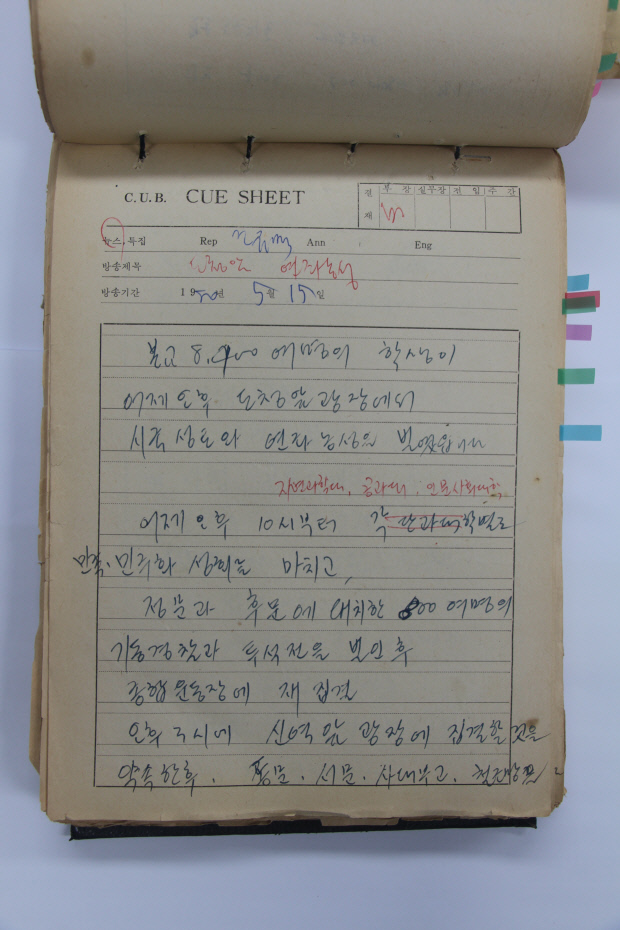 C.U.B. CUE SHEET
결재 부장 실무장 전임 주간
뉴스, 특집 Rep Ann Eng
방송제목 도청앞 연좌농성
방송기간 1980년 5월 15일
본교 8,000 여명의 학생이
어제 오후 도청앞 광장에서
시국 성토와 연좌 농성을 벌였읍니다
자연과학대, 공과대, 인문사회대학
어제 오후 10시부터 각 단과대학별로
민족·민주화 성회를 마치고,
정문과 후문에 대치한 800 여명의
기동경찰과 투석전을 벌인 후
종합운동장에 재 집결
오후 3시에 신역 앞 광장에 집결할 것을
약속한후, 동문·서문·사대부고,